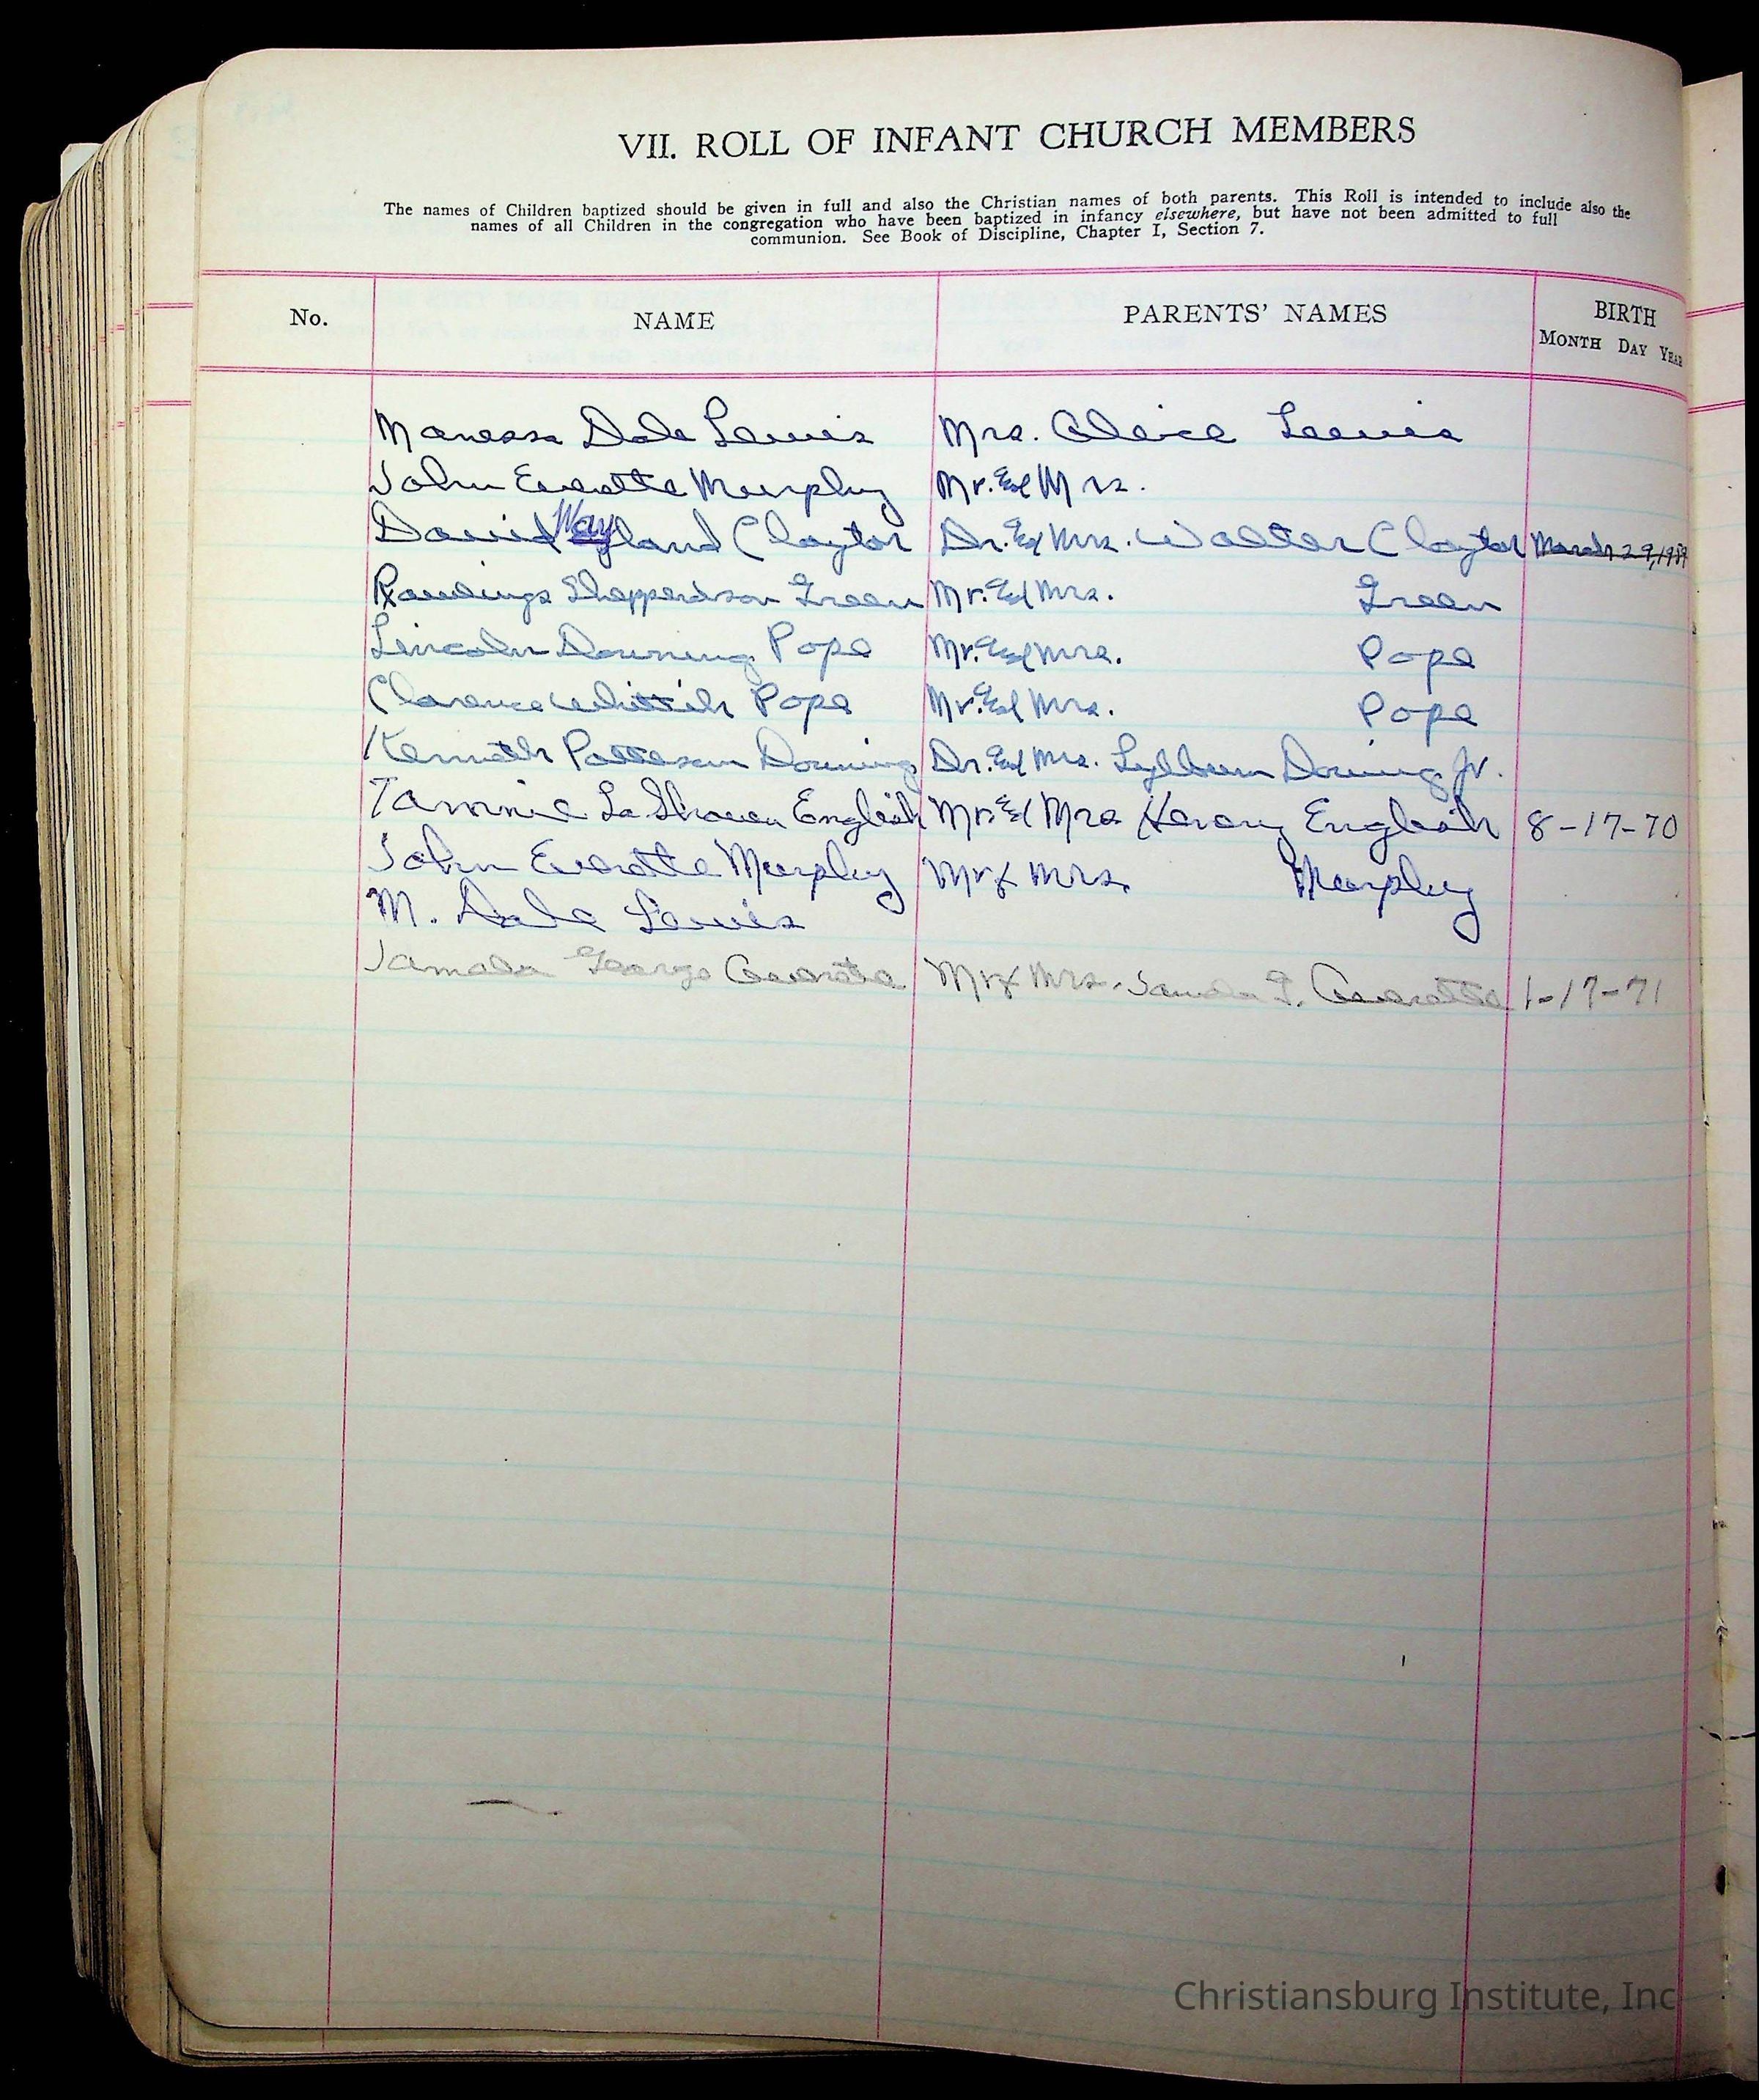 VII. ROLL OF INFANT CHURCH MEMBERS
The names of Children baptized should be given in full and also the Christian names of both parents. This Roll is intended to include also the
names of all Children in the congregation who have been baptized in infancy elsewhere, but have not been admitted to full
communion. See Book of Discipline, Chapter I, Section 7.
No. NAME PARENTS' NAMES BIRTH
MONTH DAY YEAR
Manessa Dale Lewis Mrs. Lewis
John Everette Murphy Mr. & Mrs.
David Wayland Claytor Dr. & Mrs. Walter Claytor March 29, 19
Rawlings Shepperdson Green Mr. & Mrs. Green
Lincoln Downing Pope Mr. & Mrs. Pope
Clarence Pope Mr. & Mrs. Pope
Kenneth Patterson Downing Dr. & Mrs. Lylburn Downing Jr.
Tammie La Shawn English Mr. & Mrs English 8-17-70
John Everette Murphy Mr & Mrs. Murphy
M. Dale Lewis
George Mr & Mrs. 1-17-71
Christiansburg Institute, Inc